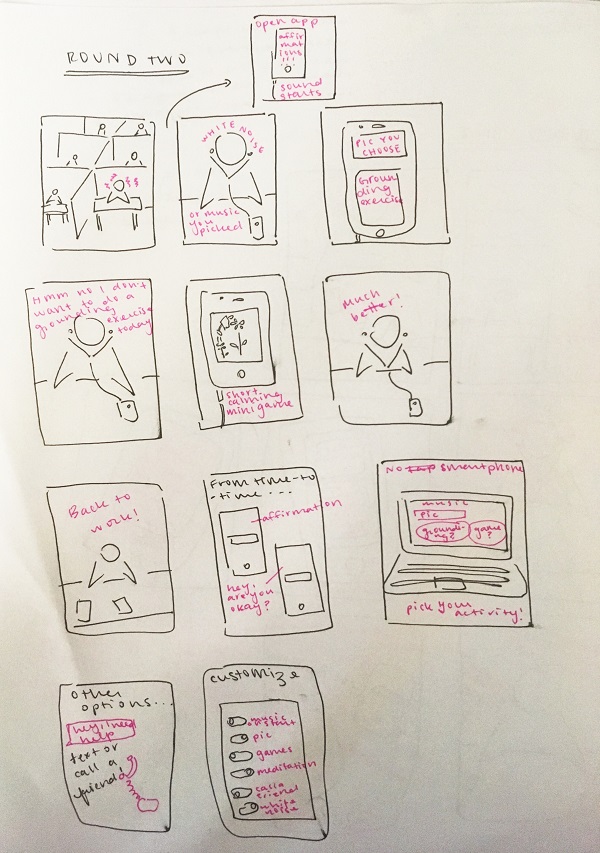 ROUND TWO
open app
affir
mat
ions
!!!
sound
starts
WHITE NOISE
or music
you
picked
PIC YOU
CHOOSE
Groun
ding
exercise
Hmm no I don't
want to do a
grounding exercise
today
short
calming
mini game
Much
better!
Back to
work!
From time-to
-time...
affirmation
hey,
are you
okay?
NO smartphone
music
pic
groundi-
ng?
game?
pick your
activity!
other
options...
hey, I need
help
text or
call a
friend!
customize
music
pic
games
meditation
call a
friend
white
noise